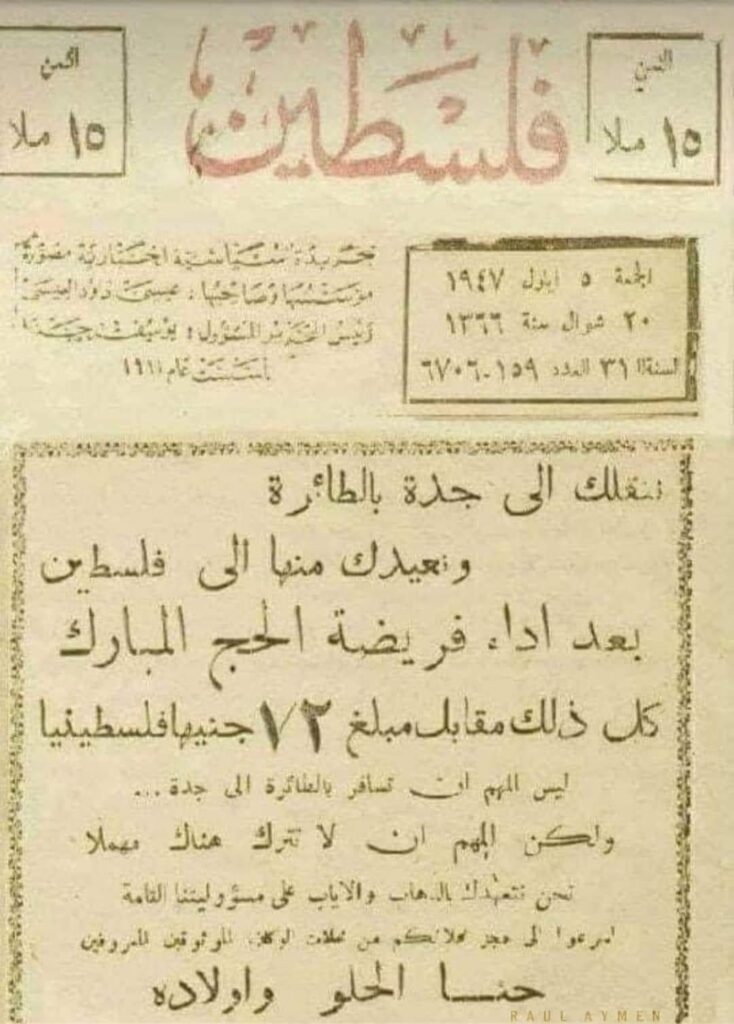 الثمن
١٥ ملا
فلسطين
الثمن
١٥ ملا
الجمعة ٥ ايلول ١٩٤٧
٢٠ شوال سنة ١٣٦٦
السنة ٣١ العدد ١٥٩-٦٧٠٦
جريدة سياسية اخبارية مصورة
مؤسسها وصاحبها: عيسى داود العيسى
رئيس التحرير المسؤول: يوسف حنا
تأسست عام ١٩١١
ننقلك الى جدة بالطائرة
ونعيدك منها الى فلسطين
بعد اداء فريضة الحج المبارك
كل ذلك مقابل مبلغ ٧٢ جنيها فلسطينيا
ليس المهم ان تسافر بالطائرة الى جدة ...
ولكن المهم ان لا تترك هناك مهملا
نحن نتعهدك بالذهاب والاياب على مسؤوليتنا التامة
اسرعوا الى حجز محلاتكم من محلات الوكلاء الموثوقين المعروفين
حنا الحلو واولاده
RAUL AYMEN